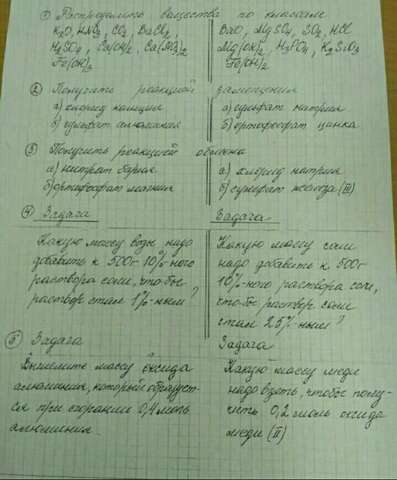 ① Распределить вещества по классам
K2O, HNO3, CO2, BaCl2,
H2SO4, Ca(OH)2, Ca(NO3)2
Fe(OH)3
BaO, MgSO4, SO2, HCl
Mg(OH)2, H3PO4, K2SiO3
Fe(OH)2
② Получить реакцией замещения
а) хлорид кальция
в) сульфат алюминия
а) сульфат натрия
б) ортофосфат цинка
③ Получить реакцией обмена
а) нитрат бария
б) ортофосфат магния
а) хлорид натрия
б) сульфат железа (III)
④ Задача
Какую массу воды надо
добавить к 500г 10%-ного
раствора соли, чтобы
раствор стал 1%-ным?
Задача
Какую массу соли
надо добавить к 500г
10%-ного раствора соли,
чтобы раствор соли
стал 25%-ным?
⑤ Задача
Вычислите массу оксида
алюминия, который образует-
ся при сгорании 0,4 моль
алюминия
Задача
Какую массу меди
надо взять, чтобы полу-
чить 0,2 моль оксида
меди (II)